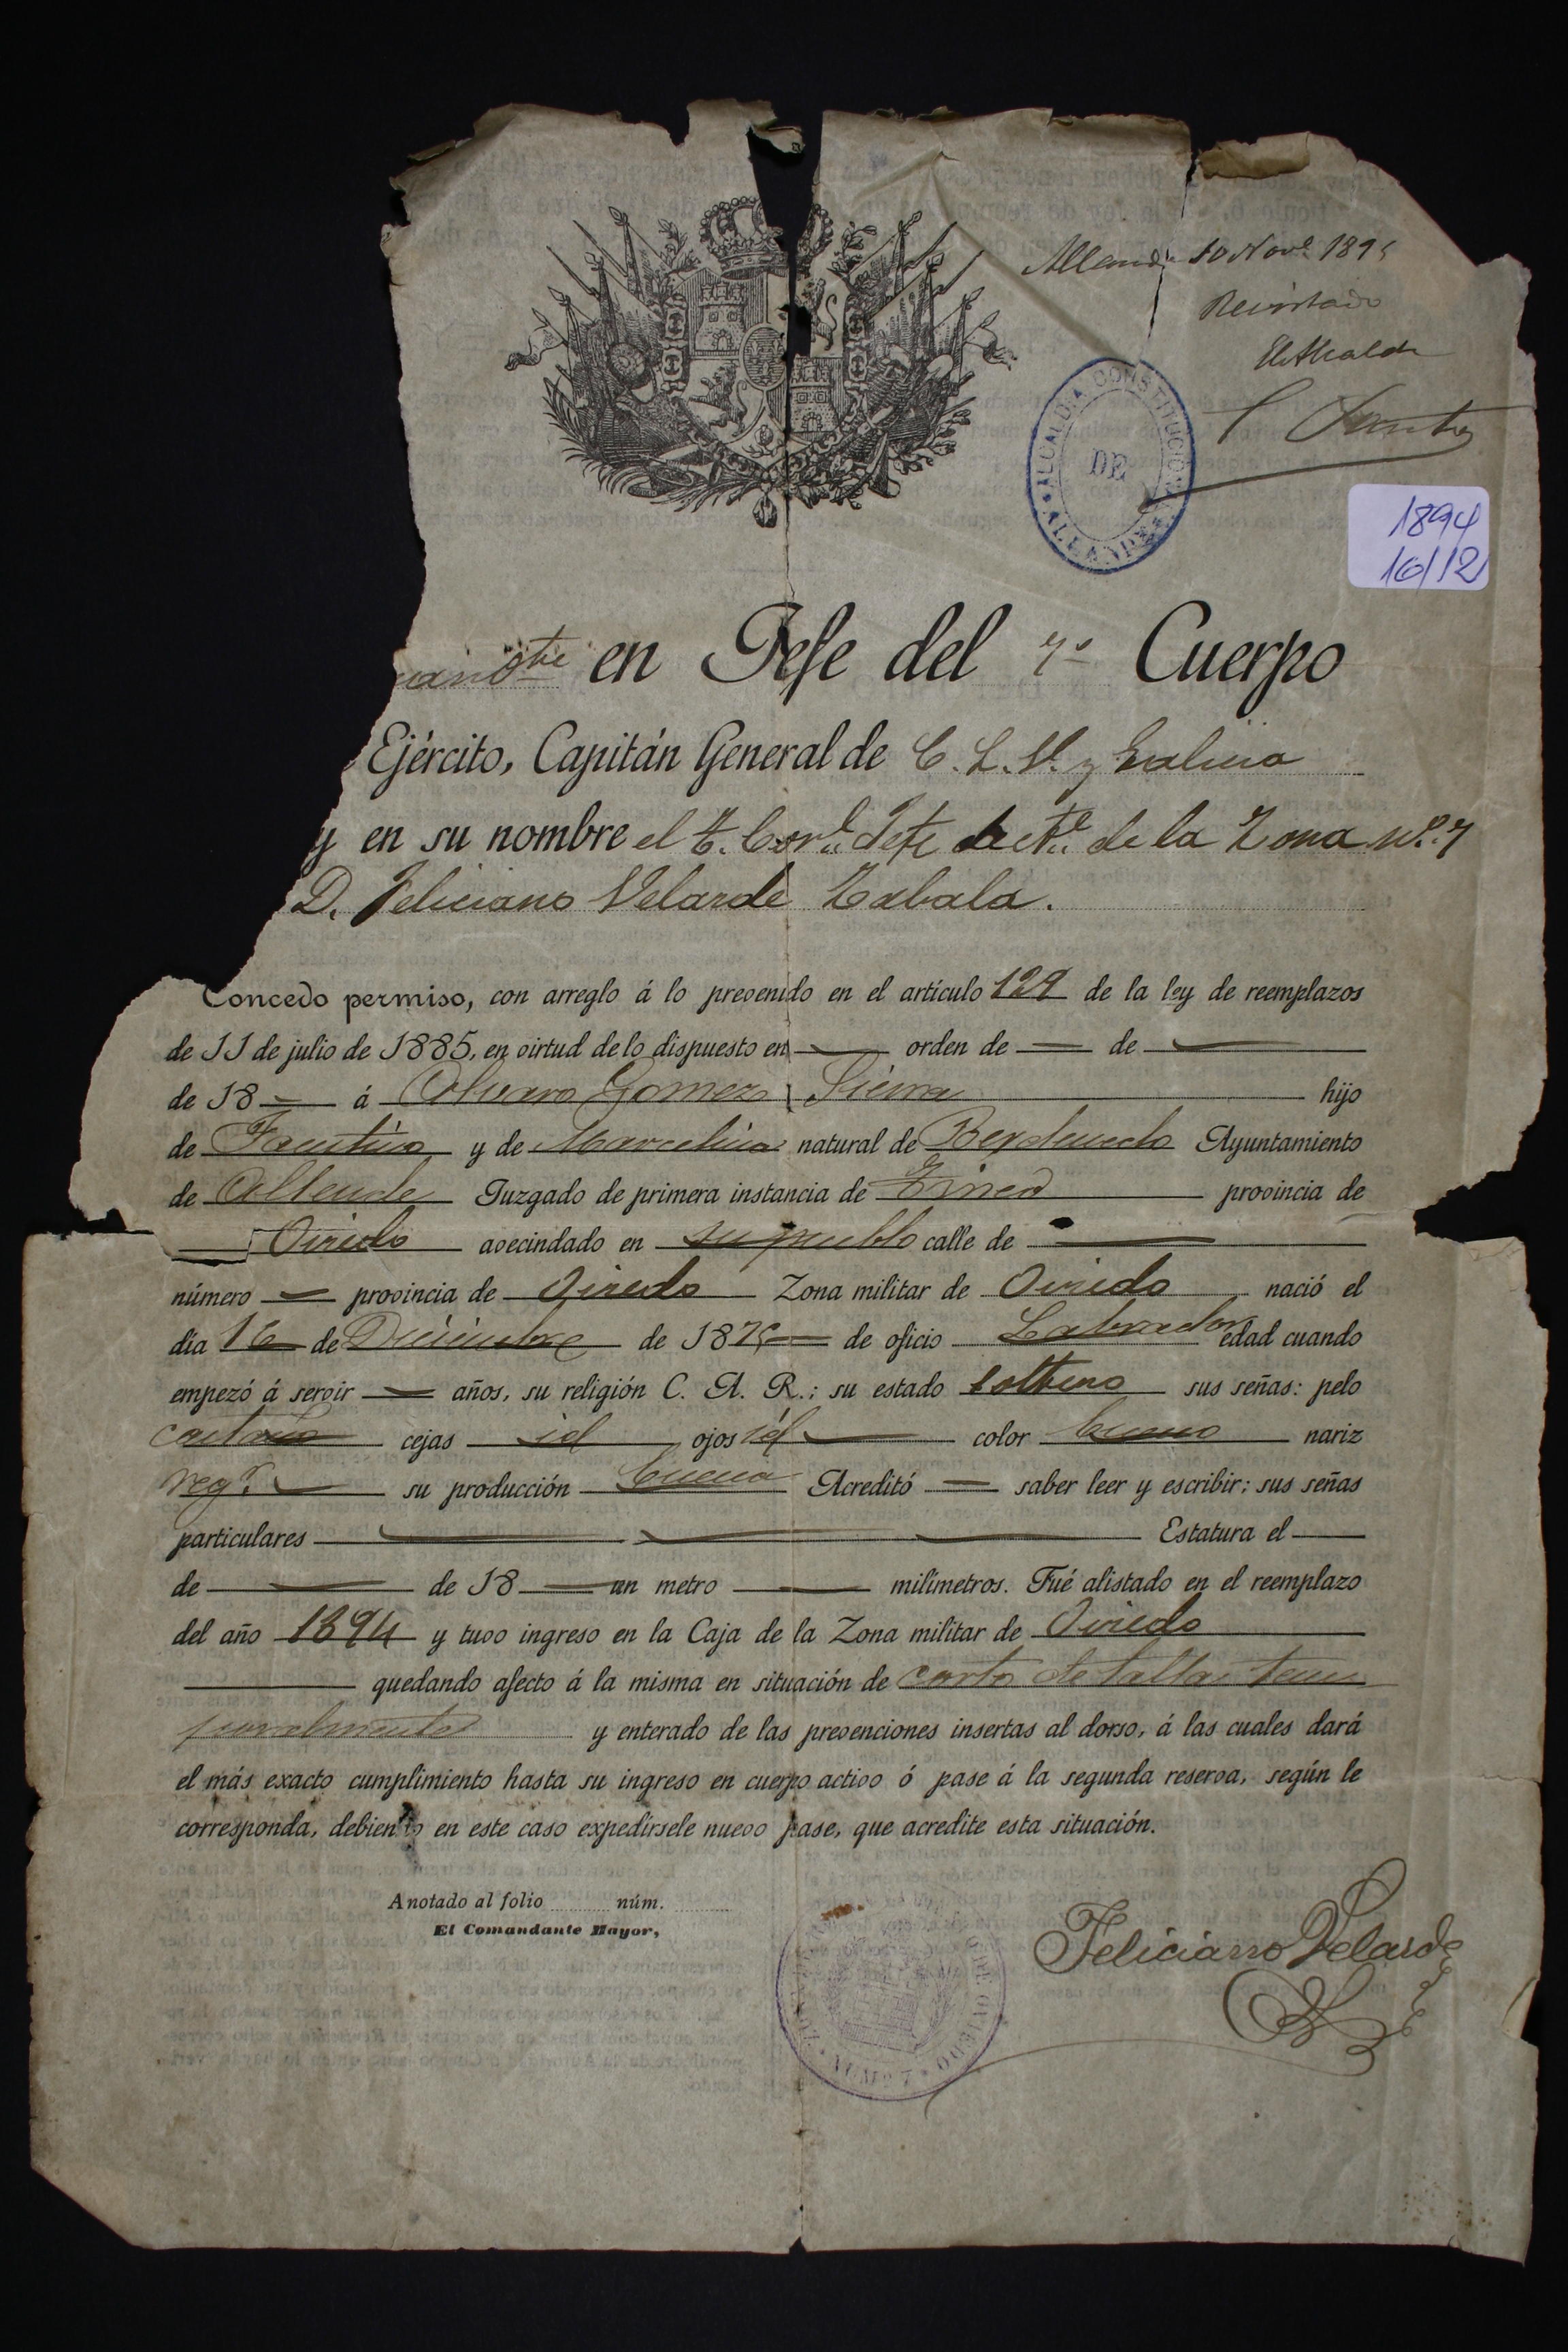 Allande 10 Nove. 189
Revistado
El Alcalde
ALCALDIA CONSTITUCION
DE
ALLANDE
1894
16/12
en Jefe del 7º Cuerpo
Ejército, Capitán General de C. L. V. y Galicia
y en su nombre el T. Corl. Jefe de la Zona nº. 7
D. Feliciano Velarde Zabala.
Concedo permiso, con arreglo á lo prevenido en el artículo 129 de la ley de reemplazos
de 11 de julio de 1885, en virtud de lo dispuesto en orden de de
de 18 á Alvaro Gomez Sierra hijo
de Faustino y de Marcelina natural de Berducedo Ayuntamiento
de Allende Juzgado de primera instancia de Tineo provincia de
Oviedo avecindado en su pueblo calle de
número provincia de Oviedo Zona militar de Oviedo nació el
día 16 de Diciembre de 1875 de oficio Labrador edad cuando
empezó á servir años, su religión C. A. R.; su estado soltero sus señas: pelo
castaño cejas id ojos id color bueno nariz
regr. su producción buena Acreditó saber leer y escribir; sus señas
particulares Estatura el
de de 18 un metro milímetros. Fué alistado en el reemplazo
del año 1894 y tuvo ingreso en la Caja de la Zona militar de Oviedo
quedando afecto á la misma en situación de corto de talla tem
poralmente y enterado de las prevenciones insertas al dorso, á las cuales dará
el más exacto cumplimiento hasta su ingreso en cuerpo activo ó pase á la segunda reserva, según le
corresponda, debiendo en este caso expedírsele nuevo pase, que acredite esta situación.
Anotado al folio núm.
El Comandante Mayor,
Feliciano Velarde